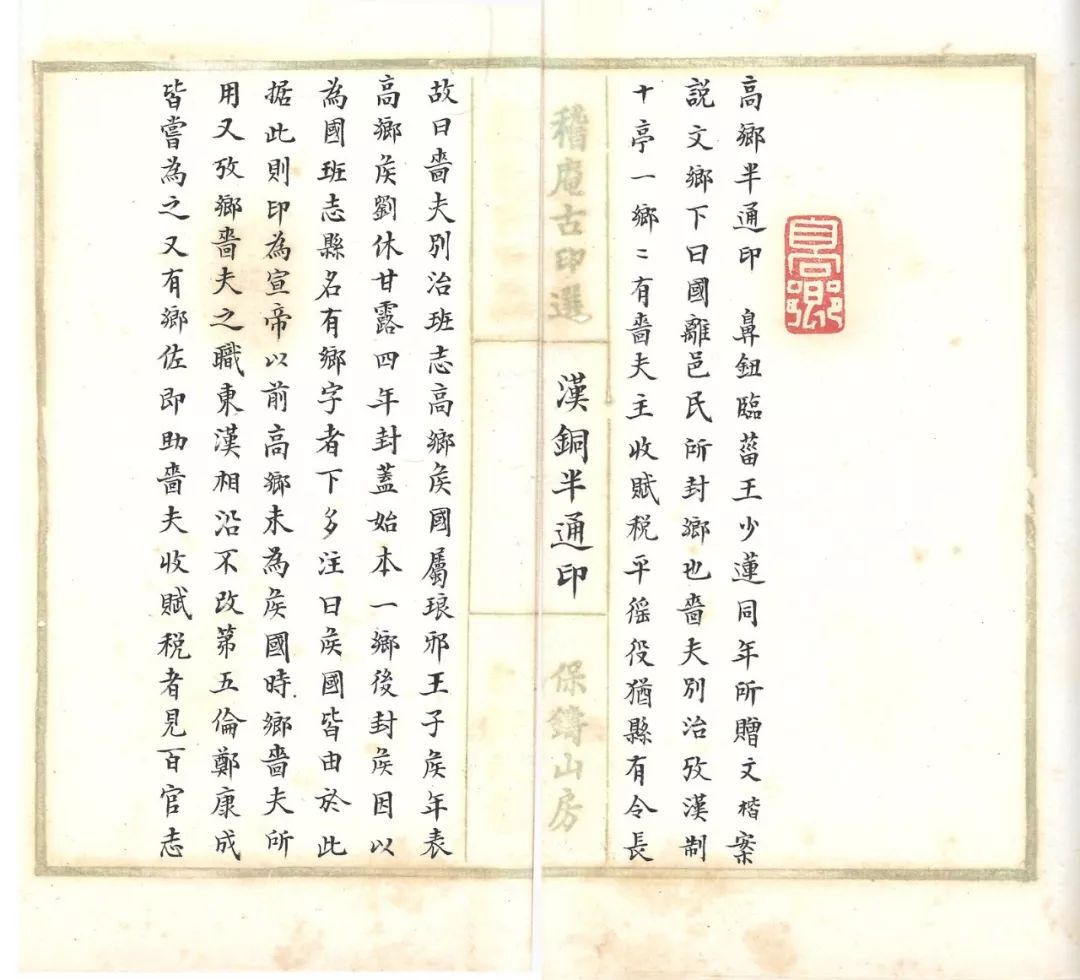 高鄉
高鄉半通印 鼻鈕臨菑王少蓮同年所贈文楷案
説文鄉下曰國離邑民所封鄉也嗇夫別治攷漢制
十亭一鄉〻有嗇夫主收賦税平徭役猶縣有令長
稽庵古印選
漢銅半通印
保鑄山房
故曰嗇夫別治班志高鄉矦國屬琅邪王子矦年表
高鄉矦劉休甘露四年封蓋始本一鄉後封矦因以
為國班志縣名有鄉字者下多注曰矦國皆由於此
据此則印為宣帝以前高鄉未為矦國時鄉嗇夫所
用又攷鄉嗇夫之職東漢相沿不改第五倫鄭康成
皆嘗為之又有鄉佐即助嗇夫收賦税者見百官志